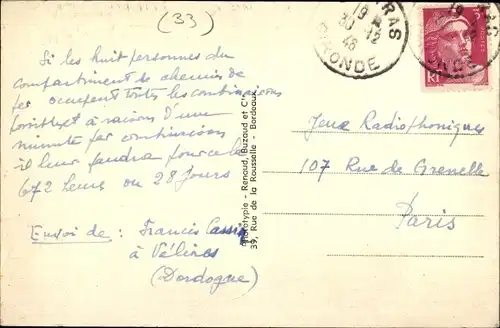 (33)
Si les huit personnes du
compartiment de chemin de
fer occupent toutes les combinaisons
à raison d'une
minute par combinaison
il leur faudra pour cela
672 heures ou 28 jours
Envoi de : Francis
à Vélines
(Dordogne)
Phototypie - Renaud, Buzaud et Cie
39, Rue de la Rousselle - Bordeaux
RAS
19
30 12
48
GIRONDE
RF
Jeux Radiophoniques
107 Rue de Grenelle
Paris